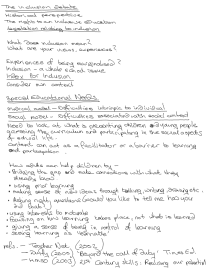 The Inclusion Debate
Historical perspective
The rights to an inclusive education
Legislation relating to inclusion
What does inclusion mean?
What are your views, experiences?
Experiences of being excluded?
Inclusion - a whole school issue
Index for Inclusion
Consider own context
Special Educational Needs
Medical model - Difficulties intrinsic to individual
Social model - Difficulties associated with social context
Need to look at what is preventing children and young people
accessing the curriculum and participating in the social aspects
of school life.
Context can act as a facilitator or a barrier to learning
and participation
How adults can help children by -
• Bridging the gap and make connections with what they
already know
• using prior learning
• making sense of new ideas through talking, writing, drawing etc.
• Asking rights questions (would you like to tell me how you
did that?)
• using interests to motivate
• focusing on how learning takes place, not what is learned
• giving a sense of being in control of learning
• seeing learning as "learnable"
refs - Teacher Net (2002)
(2003) "Beyond the call of duty" Times Ed.
(2003) 21st Century Skills: Realising our potential